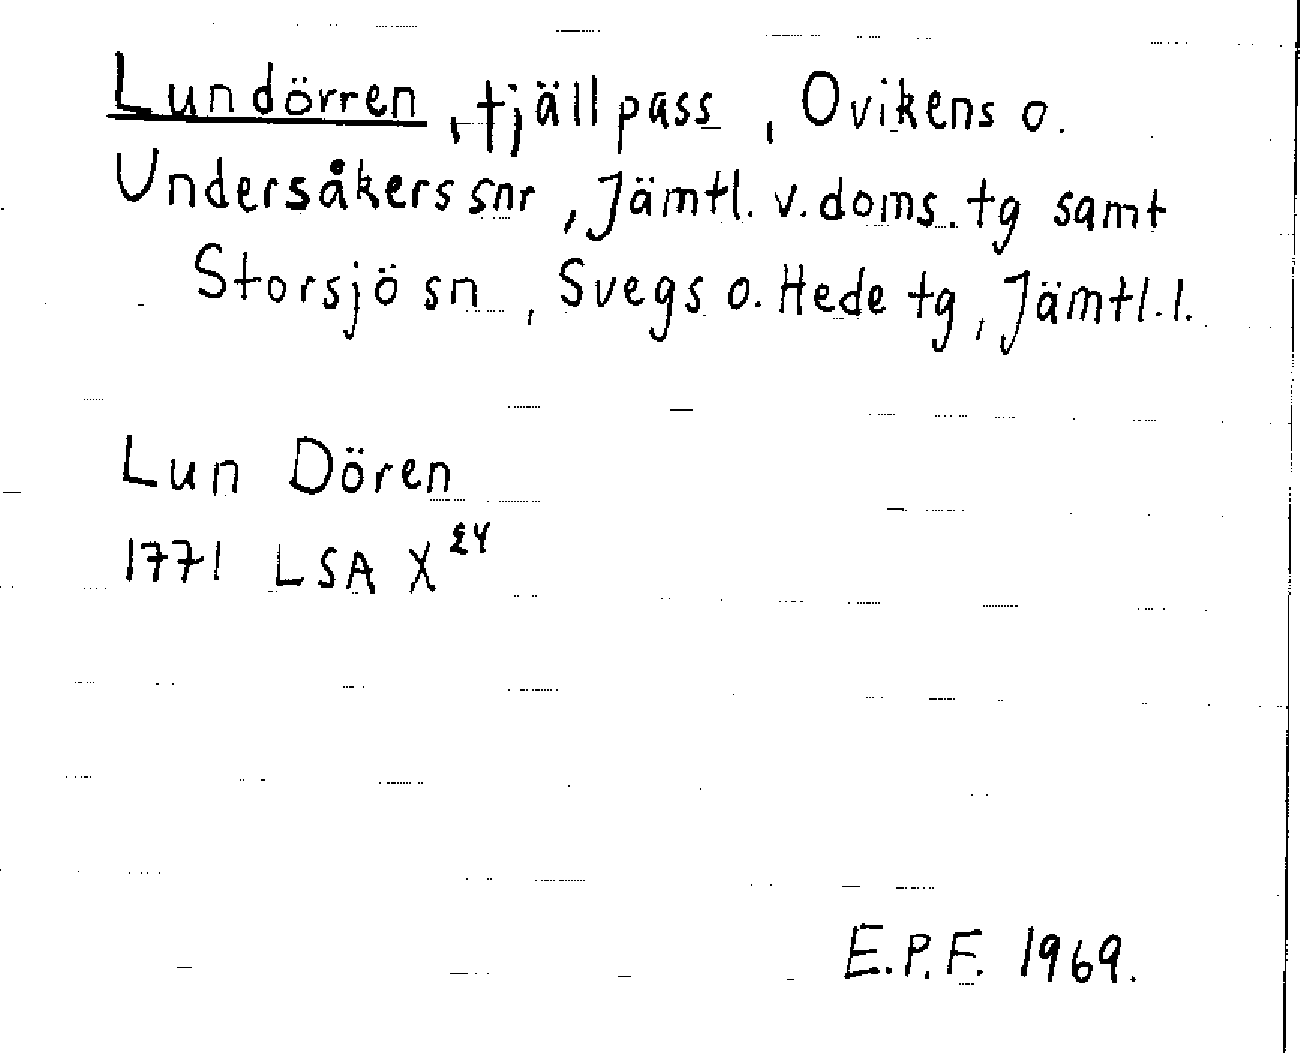 Lundörren, fjällpass, Ovikens o.
Undersåkers snr, Jämtl. v. doms. tg samt
Storsjö sn, Svegs o. Hede tg, Jämtl. l.
Lun Dören
1771 LSA X 24
E.P.F. 1969.